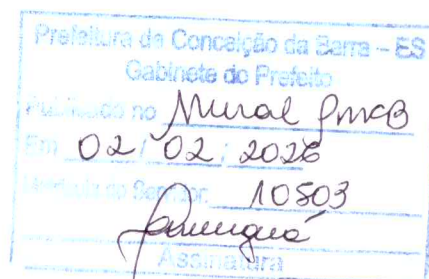 Prefeitura de Conceição da Barra – ES
Gabinete do Prefeito
Publicado no Mural PMCB
Em 02 / 02 / 2026
do Servidor: 10503
Assinatura